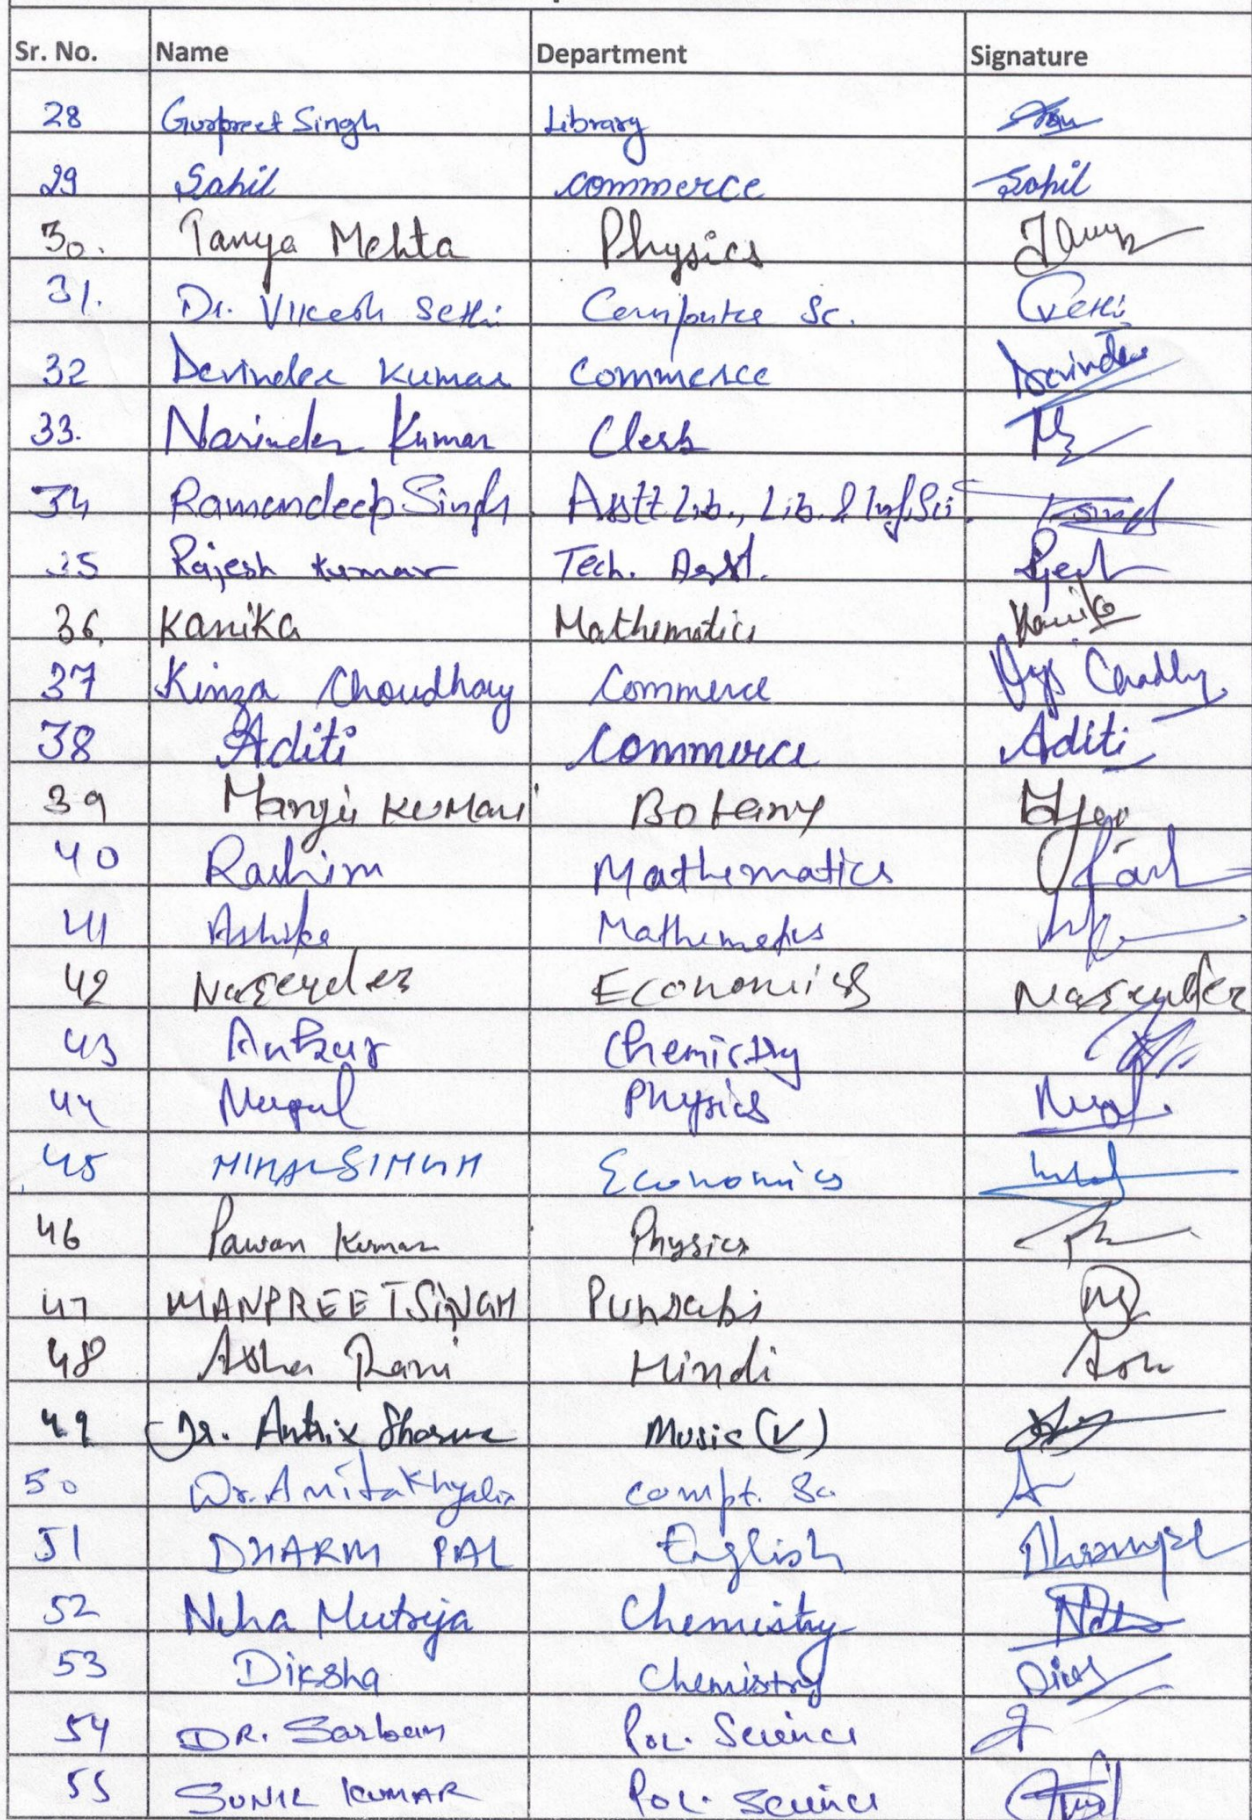 Sr. No. Name Department Signature
28 Gurpreet Singh Library
29 Sahil commerce Sahil
30. Tanya Mehta Physics
31. Dr. Vikesh Sethi Computer Sc. Sethi
32 Devinder Kumar Commerce Devinder
33. Narinder Kumar Clerk
34 Ramandeep Singh Asstt Lib., Lib. & Inf. Sci
35 Rajesh Kumar Tech. Asst.
36. Kanika Mathematics Kanika
37 Kinza Choudhary Commerce
38 Aditi Commerce Aditi
39 Manju Kumari Botany
40 Rashim Mathematics
41 Mathematics
42 Narender Economics Narender
43 Ankur Chemistry
44 Physics
45 Economics
46 Pawan Kumar Physics
47 MANPREET SINGH Punjabi
48 Asha Rani Hindi
49 Dr. Antrix Sharma Music (V)
50 Dr. Anita Khyalia compt. Sc.
51 DHARM PAL English Dharmpal
52 Neha Mutreja Chemistry
53 Diksha Chemistry
54 DR. Sarban Pol. Science
55 SUNIL KUMAR Pol. Science